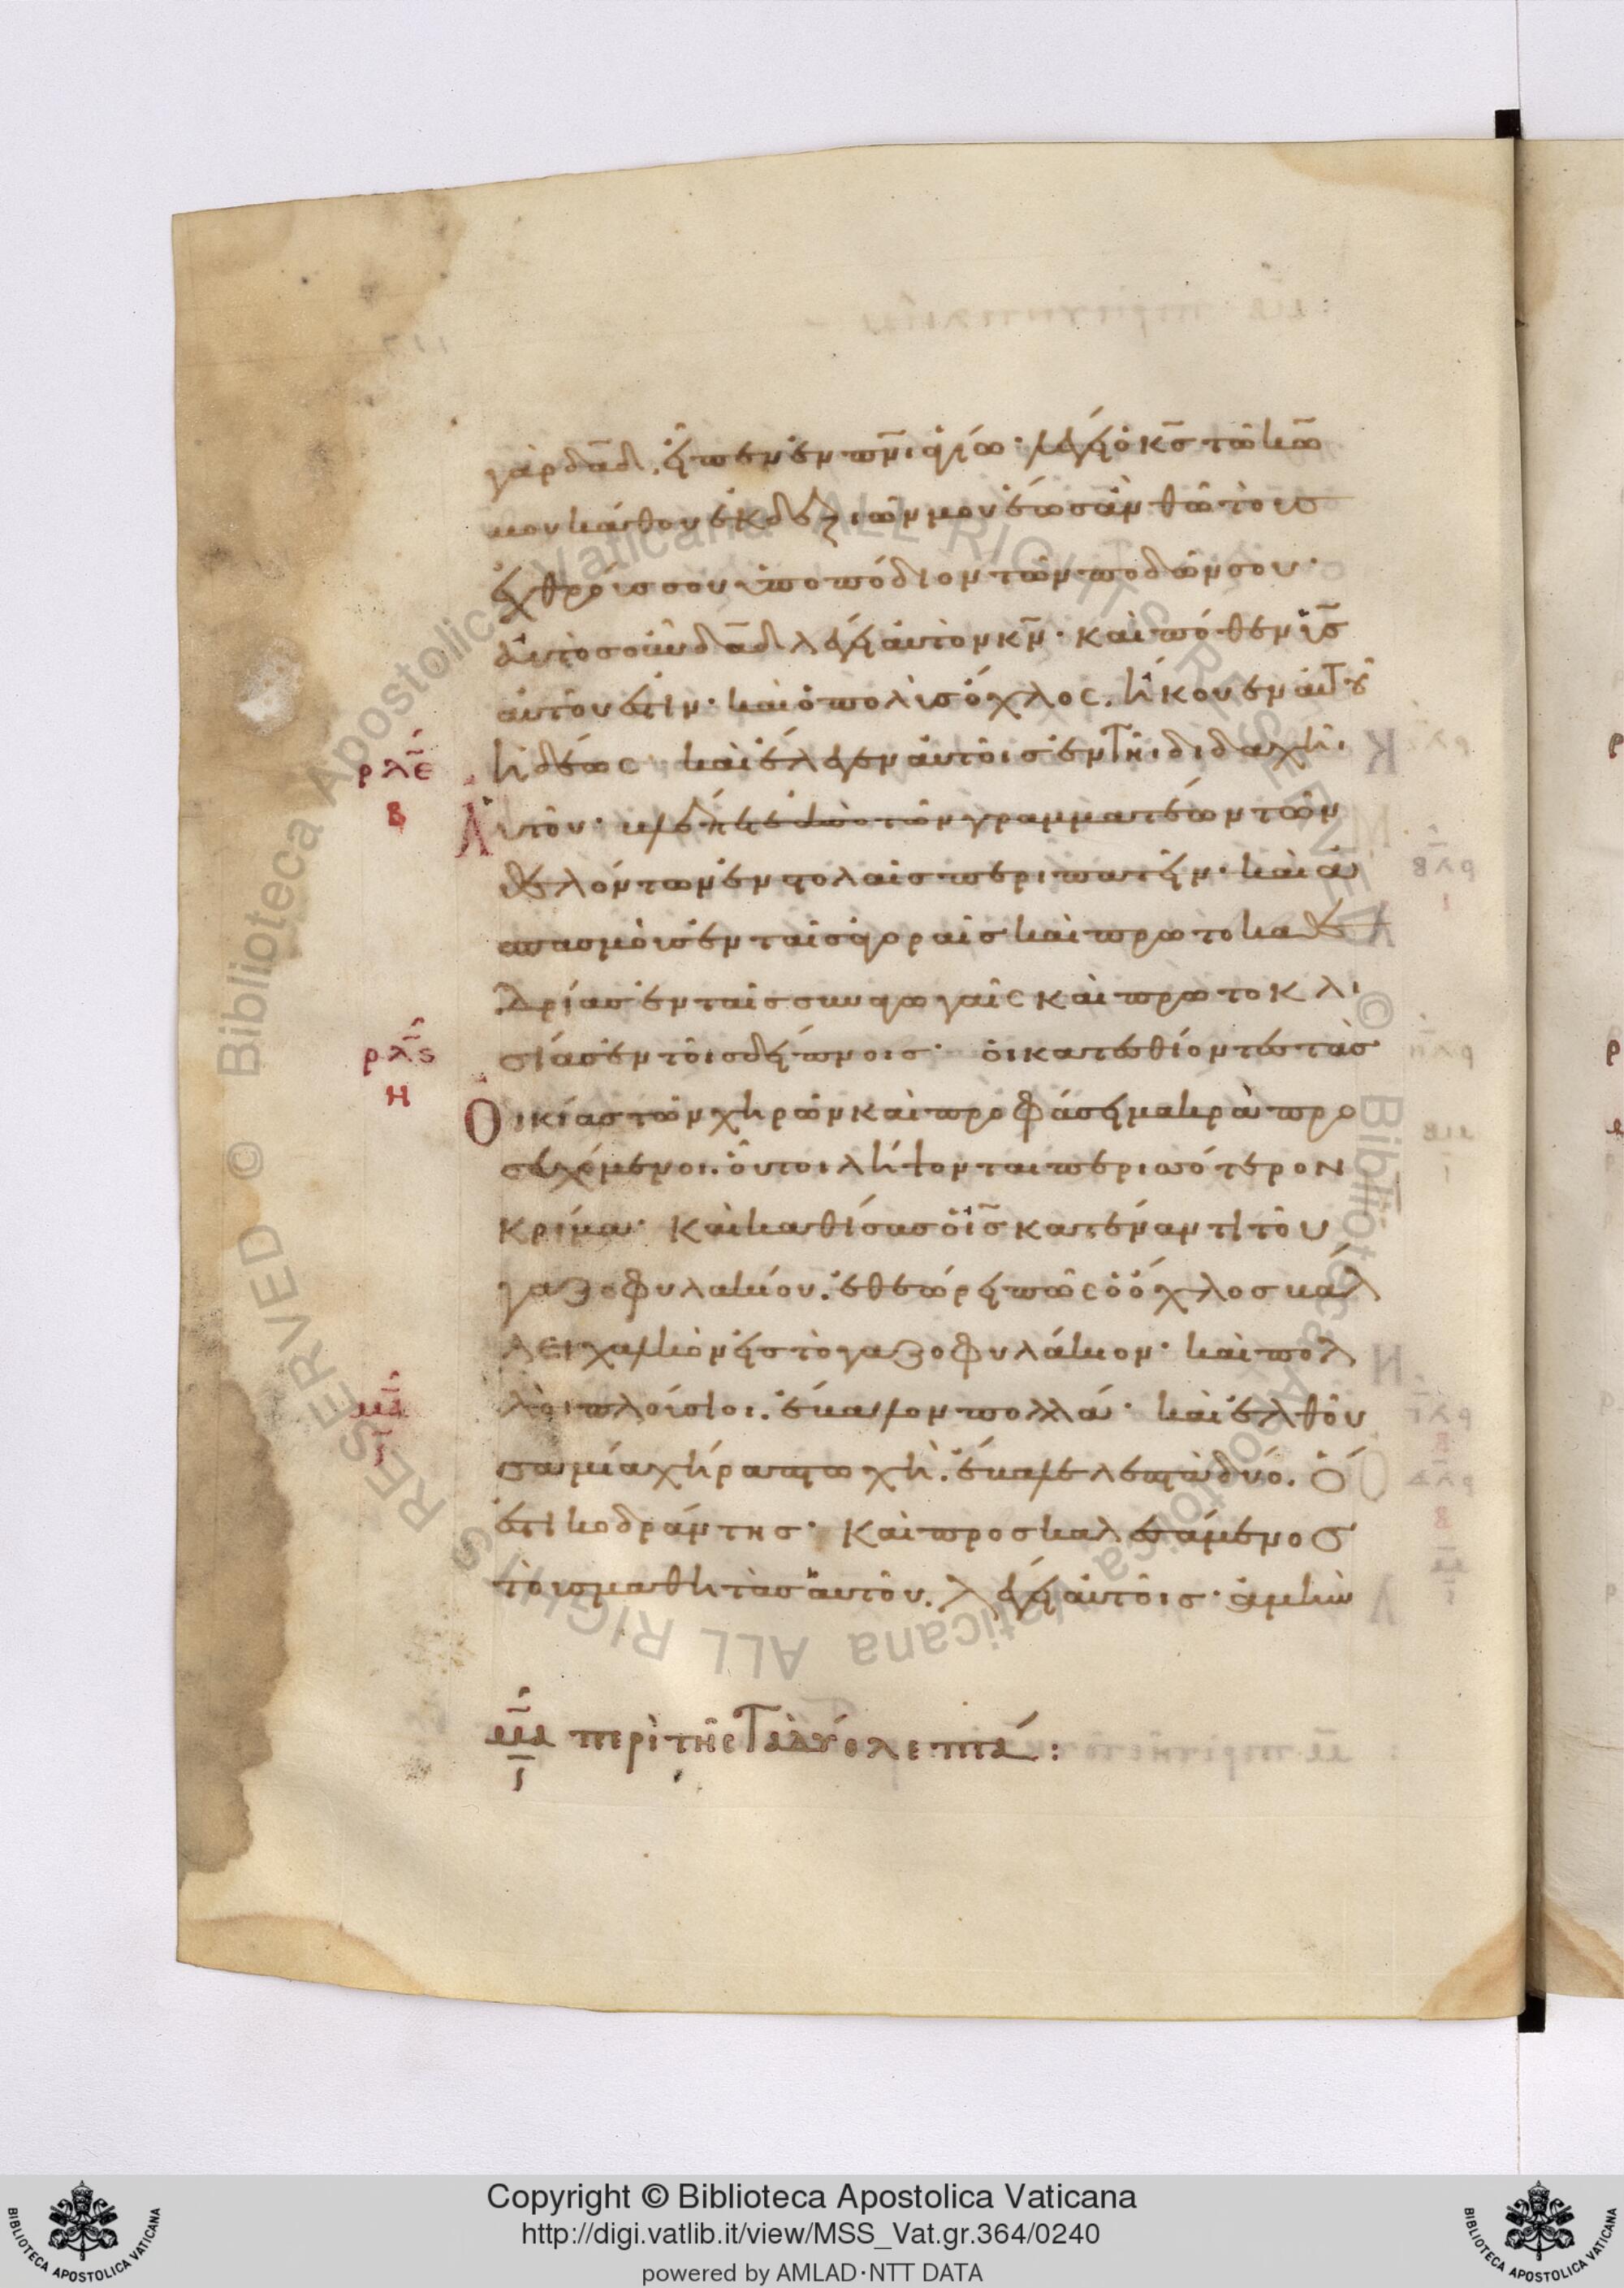 γὰρ δᾱδ. εἶπεν ἐν πν̄ι ἁγίω· λέγει ὁ κς̄ τῶ κω̄
μου κάθου ἐκ δεξιῶν μου ἕως ἂν θῶ τοὺς
ἐχθρούς σου ὑποπόδιον τῶν ποδῶν σου·
ἀυτὸς οὖν δᾱδ λέγει ἀυτὸν κν̄· καὶ πόθεν ϋς̄
ἀυτοῦ ἐστιν· καὶ ὁ πολὺς ὄχλος. ἤκουεν αὐτοῦ
ἡδέως καὶ ἔλεγεν ἀυτοῖς ἐν τῆι διδαχῆι
ρλε
β
Ἀυτοῦ· βλέπετε ἀπὸ τῶν γραμματέων τῶν
θελόντων ἐν στολαῖς περιπατεῖν· καὶ ἀ
σπασμοὺς ἐν ταῖς ἀγοραῖς καὶ πρωτοκαθε
δρίας ἐν ταῖς συναγωγαῖς καὶ πρωτοκλι
σίας ἐν τοῖς δείπνοις· ὁι κατεσθίοντες τὰς
ρλς
η
Ὀικίας τῶν χηρῶν καὶ προφάσει μακρὰ προ
σευχόμενοι. οὗτοι λήψονται περισσότερον
κρίμα· Καὶ καθίσας ὁ ις̄ κατέναντι τοῦ
γαζοφυλακίου. ἐθεώρει πῶς ὁ ὄχλος βάλ
λει χαλκὸν εἰς τὸ γαζοφυλάκιον· καὶ πολ
μα
ι
λοὶ πλούσιοι. ἔβαλλον πολλά· καὶ ἐλθοῦ
σα μία χήρα πτωχὴ. ἔβαλε λεπτὰ δύο. ὅ
ἐστι κοδράντης· Καὶ προσκαλεσάμενος
τοὺς μαθητὰς ἀυτοῦ. λέγει ἀυτοῖς· ἀμὴν
μα περὶ τῆς τὰ δύο λεπτά:
ι
Copyright © Biblioteca Apostolica Vaticana
http://digi.vatlib.it/view/MSS_Vat.gr.364/0240
powered by AMLAD·NTT DATA
BIBLIOTECA APOSTOLICA VATICANA
BIBLIOTECA APOSTOLICA VATICANA
Biblioteca Apostolica Vaticana ALL RIGHTS RESERVED ©
Biblioteca Apostolica Vaticana ALL RIGHTS RESERVED ©